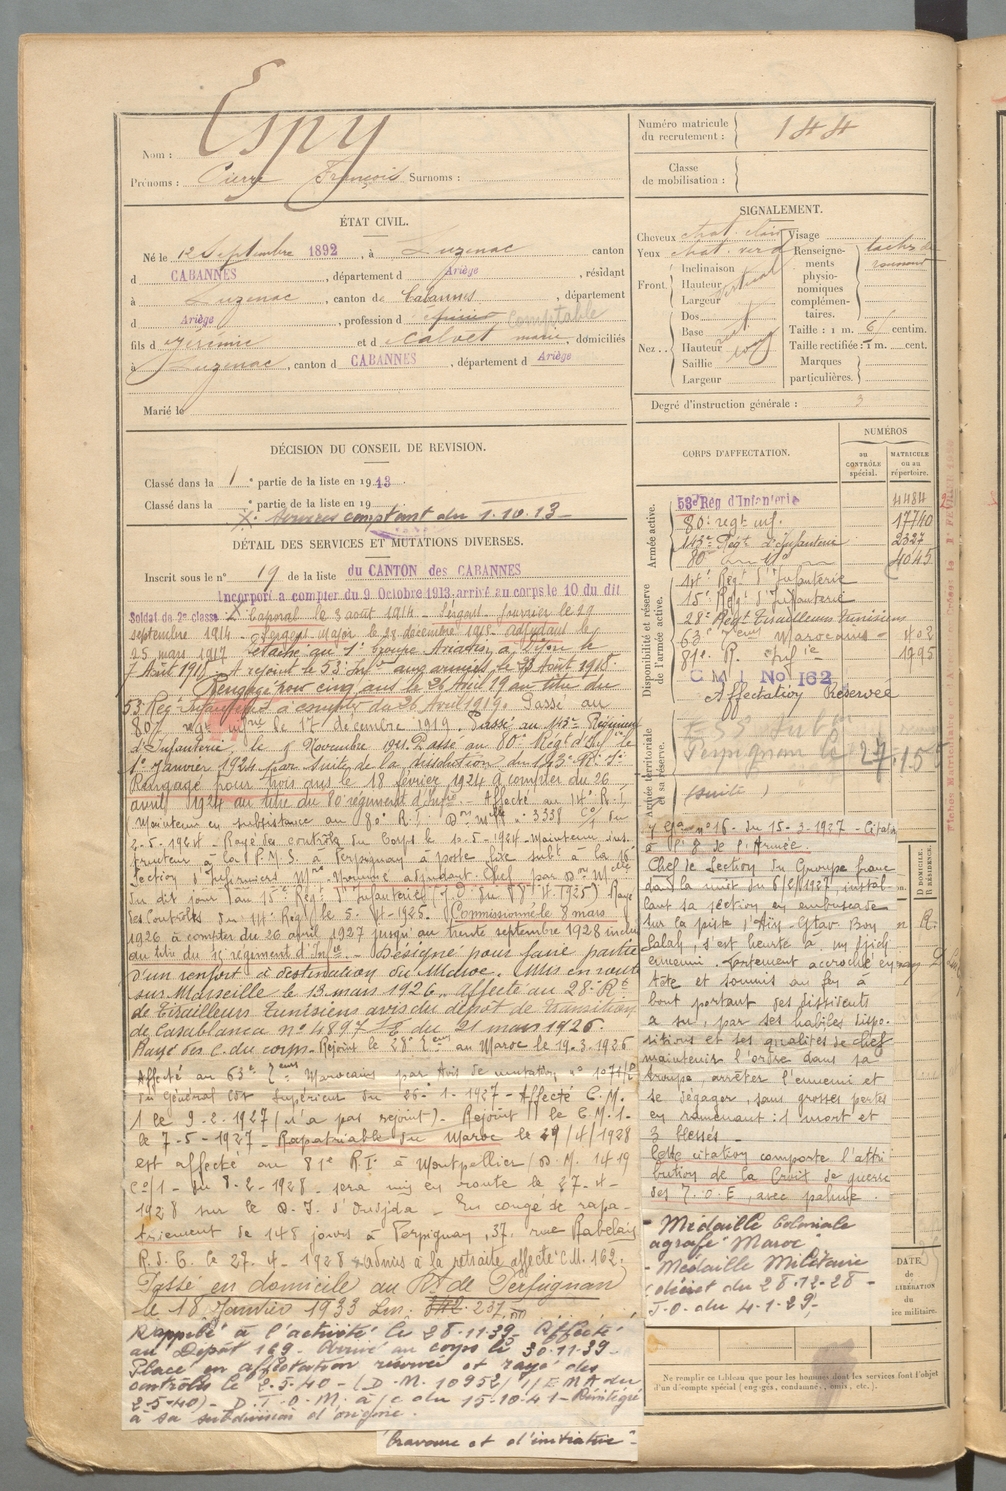 Nom : Espy
Prénoms : Pierre François Surnoms :
Numéro matricule du recrutement : 144
Classe de mobilisation :
ÉTAT CIVIL.
Né le 12 Septembre 1892, à Luzenac canton
d CABANNES, département d Ariège, résidant
à Luzenac, canton de Cabannes, département
d Ariège, profession d épicier comptable
fils d Jérémie et d Calvet marie, domiciliés
à Luzenac, canton d CABANNES, département d Ariège
Marié le
SIGNALEMENT.
Cheveux chat. clair
Yeux chat. verd
Front. Inclinaison vertical
Hauteur
Largeur
Nez.. Dos
Base
Hauteur
Saillie
Largeur
Visage
Renseignements physionomiques complémentaires. taches de
Taille : 1 m. 61 centim.
Taille rectifiée : 1 m. cent.
Marques particulières.
Degré d'instruction générale : 3
DÉCISION DU CONSEIL DE REVISION.
Classé dans la 1e partie de la liste en 1913.
Classé dans la e partie de la liste en 19
X. Services comptant du 1.10.13
DÉTAIL DES SERVICES ET MUTATIONS DIVERSES.
Inscrit sous le n° 19 de la liste du CANTON des CABANNES
Incorporé à compter du 9 Octobre 1913, arrivé au corps le 10 du dit
Soldat de 2e classe X Caporal le 3 août 1914 - Sergent fourrier le 29
septembre 1914 - Sergent Major le 28 décembre 1915 - adjudant le
25 mars 1917 Détaché au 1er Groupe Aviation, à Dijon le
7 Août 1918 - A rejoint le 53e Infie aux armées, le Août 1918
Rengagé pour cinq ans le 26 Avril 19 au titre du
53 Reg Infanterie à compter du 26 Avril 1919. Passé au
80e regt infrie le 17 décembre 1919. Passé au 143e Régiment
d'Infanterie, le 1 Novembre 1921. Passé au 80e Régt d'Infie le
1er Janvier 1924 par suite de la dissolution du 143e R. I.
Rengagé pour trois ans le 18 février 1924 à compter du 26
avril 1924 au titre du 80 régiment d'Infie - Affecté au 14e R. I.
Maintenu en subsistance au 80e R. I. n° 3338 du
2-5-1924 - Rayé des contrôles du Corps le 10-5-1924 - Maintenu ins-
tructeur à la P.M.S. à Perpignan à poste fixe subt à la 16e
Section d'Infirmiers Mres - Nommé adjudant Chef par Don Melle
du dit jour au 15e Régt d'Infanterie Rayé
des Contrôles du 14e Régt le 5-4-1925. Commissionné le 8 mars
1926 à compter du 26 avril 1927 jusqu'au trente septembre 1928 inclu
au titre du 15 régiment d'Infie - Désigné pour faire partie
d'un renfort à destination du Maroc. Mis en route
sur Marseille le 13 mars 1926. Affecté au 28e Rt
de Tirailleurs Tunisiens avis du dépôt de transition
de Casablanca n° 4897 E du 21 mars 1926.
Rayé des C. du corps - Rejoint le 28e au Maroc le 19.3.1926
Affecté au 63e Marocains par Avis de mutation n° 1071
du Général Cdt Supérieur du 26-1-1927 - Affecté C.M.
1 le 9-2-1927 (n'a pas rejoint) - Rejoint le C.M.1-
le 7-5-1927 - Rapatriable du Maroc le 29/4/1928
est affecté au 81e R.I. à Montpellier (D.M. 1419
C°/1 - du 8-2-1928 - sera mis en route le 27-4-
1928 sur le D.I. d'Oudjda - En congé de rapa-
triement de 148 jours à Perpignan, 37, rue Rabelais
R.d.C. le 27-4-1928 admis à la retraite affecté C.M. 162.
Passé en domicile au Rt de Perpignan
le 18 Janvier 1933 237
Rappelé à l'activité le 28-11-39 - Affecté
au Dépôt 169 - Arrivé au corps le 30-11-39 -
Placé en affectation réservée et rayé des
contrôles le 2-5-40 - (D.M. 10952/1/EMA du
2-5-40) - D.T.O.M. à/c du 15-10-41 - Réintégré
à sa subdivision d'origine.
bravoure et d'initiative -
CORPS D'AFFECTATION.
NUMÉROS
au CONTRÔLE spécial.
MATRICULE ou au répertoire.
Armée active.
53e Rég d'Infanterie 4484
80e regt inf. 17740
143e Régt d'Infanterie 2327
80e 4045
Disponibilité et réserve de l'armée active.
14e Régt d'Infanterie
15e Régt d'Infanterie
28e Régt Tirailleurs Tunisiens
63e Marocains - 402
81e R. Infie 1295
C M I No 162
Affectation Réservée
Armée territoriale et sa réserve.
Perpignan
(suite)
n° 16 - du 15-3-1927 - Citation
à l'O de l'Armée.
Chef de Section du Groupe franc
dans la nuit du 1927, instal-
lant sa section en embuscade
sur la piste d'Aïn-Gtar Bou
Salah, s'est heurté à un fich
ennemi. Fortement accroché en
tête et soumis au feu à
bout portant des dissidents
a su, par ses habiles dispo-
sitions et ses qualités de chef
maintenir l'ordre dans sa
troupe, arrêter l'ennemi et
se dégager, sans grosses pertes
en ramenant : 1 mort et
3 blessés -
Cette citation comporte l'attri
bution de la Croix de guerre
des T.O.E, avec palme.
- Médaille Coloniale
agrafe "Maroc"
- Médaille Militaire
(décret du 28-12-28 -
J.O. du 4-1-29 -
D DOMICILE.
R RÉSIDENCE.
DATE DE LIBÉRATION du service militaire.
Ne remplir ce tableau que pour les hommes dont les services font l'objet
d'un compte spécial (engagés, condamnés, omis, etc.).